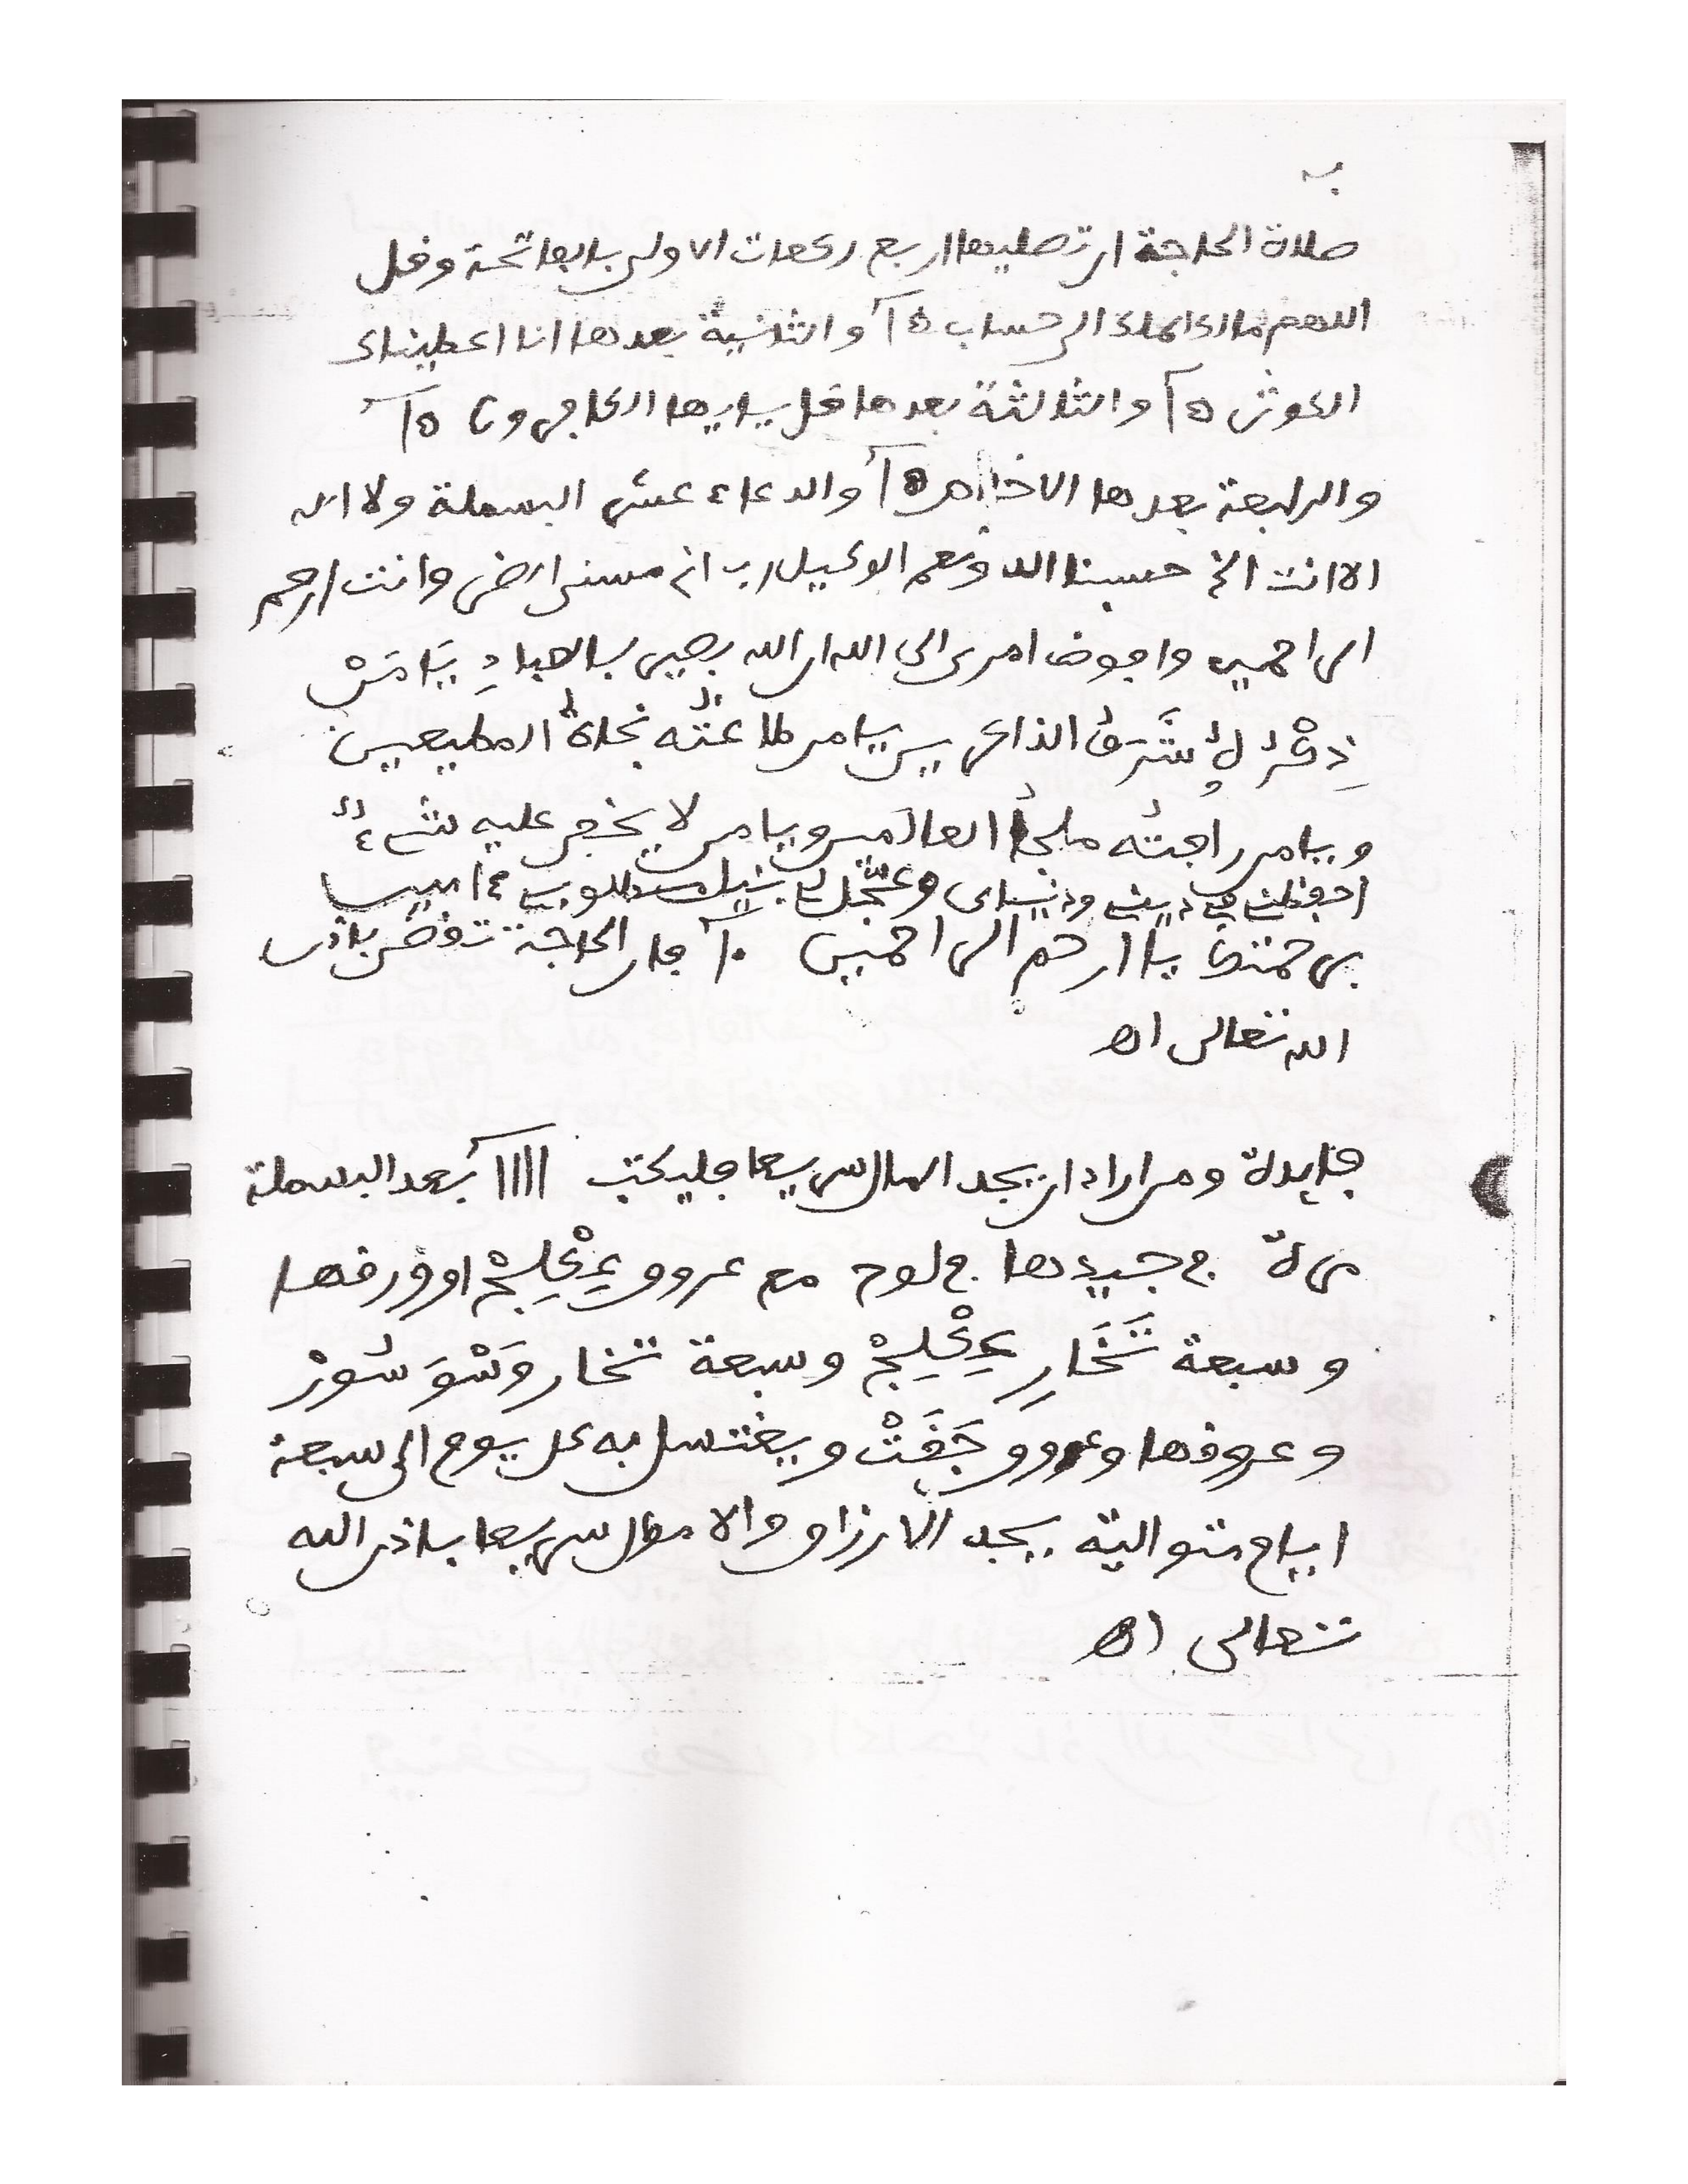 صلاة الحاجة ان تصليها اربع ركعات الاولى بالفاتحة وقل
اللهم مالك الملك الى حساب ١٥ والثانية بعدها انا اعطيناك
الكوثر ١٥ والثالثة بعدها قل يا ايها الكافرون ١٥
والرابعة بعدها الاخلاص ١٥ والدعاء عشر البسملة ولا اله
الا انت الخ حسبنا الله ونعم الوكيل رب اني مسني الضر وانت ارحم
الراحمين وافوض امرى الى الله ان الله بصير بالعبادِ يَا مَنْ
ذِكْرُهُ شَرَفُ الذاكرين يا من طاعتُه نجاةٌ المطيعين
ويا من رافتُه ملجأ العالمين ويا من لا يخفى عليه شيءٌ
احفظني في ديني ودنياى وعَجِّل لي بنيل مطلوبي ءامين
برحمتك يا ارحم الراحمين ١٠ فان الحاجة تقضى باذن
الله تعالى اه
فايدة ومن اراد ان يجد المال سريعا فليكتب ١١١١ بعد البسملة
مرة في لوح مع عروق او ورقها
وسبعة تَخَارِ وسبعة تخار
وعروقها وعروق ويغتسل به كل يوم الى سبعة
ايام متوالية يجد الارزاق والاموال سريعا باذن الله
تعالى اه